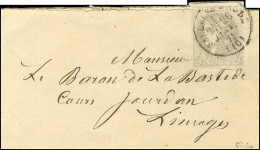 Monsieur
Le Baron de La Bastide
Cours Jourdan
Limoges